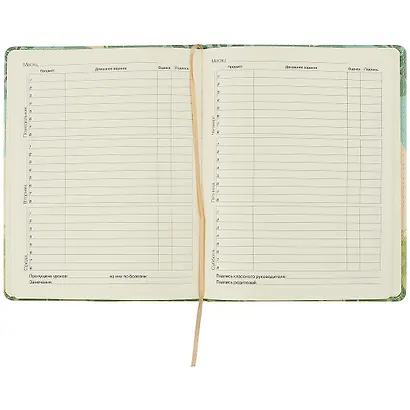 Месяц
Предмет Домашнее задание Оценка Подпись
Понедельник
Вторник
Среда
Пропущено уроков: из них по болезни:
Замечания:
Месяц
Предмет Домашнее задание Оценка Подпись
Четверг
Пятница
Суббота
Подпись классного руководителя:
Подпись родителей: